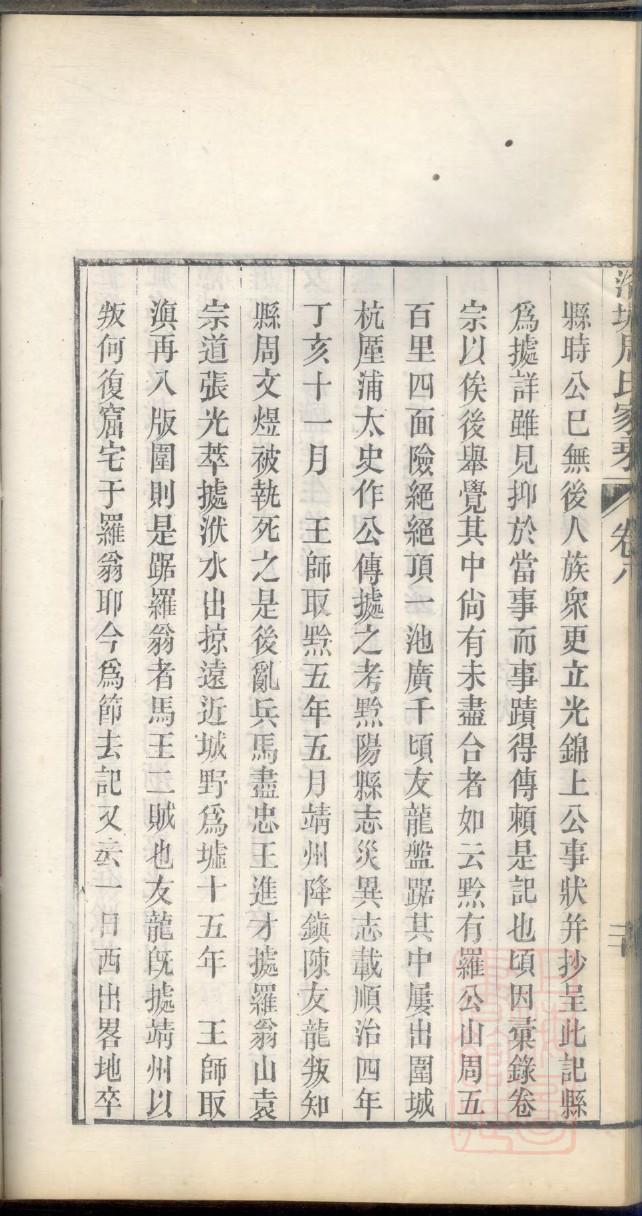 縣時公已無後人族衆更立光錦上公事狀并抄呈此記縣
爲據詳雖見抑於當事而事蹟得傳賴是記也頃因彙錄卷
宗以俟後舉覺其中尙有未盡合者如云黔有羅公山周五
百里四面險絕絕頂一池廣千頃友龍盤踞其中屢出圍城
杭厓浦太史作公傳據之考黔陽縣志災異志載順治四年
丁亥十一月　王師取黔五年五月靖州降鎭陳友龍叛知
縣周文煜被執死之是後亂兵馬盡忠王進才據羅翁山袁
宗道張光萃據洑水出掠遠近城野爲墟十五年　王師取
滇再入版圍則是踞羅翁者馬王二賊也友龍旣據靖州以
叛何復窟宅于羅翁耶今爲節去記又云一日西出畧地卒
周氏家
卷六